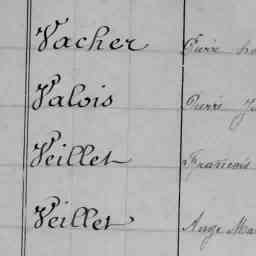 Vacher
Valois Pierre
Veillet François
Veillet Ange Ma